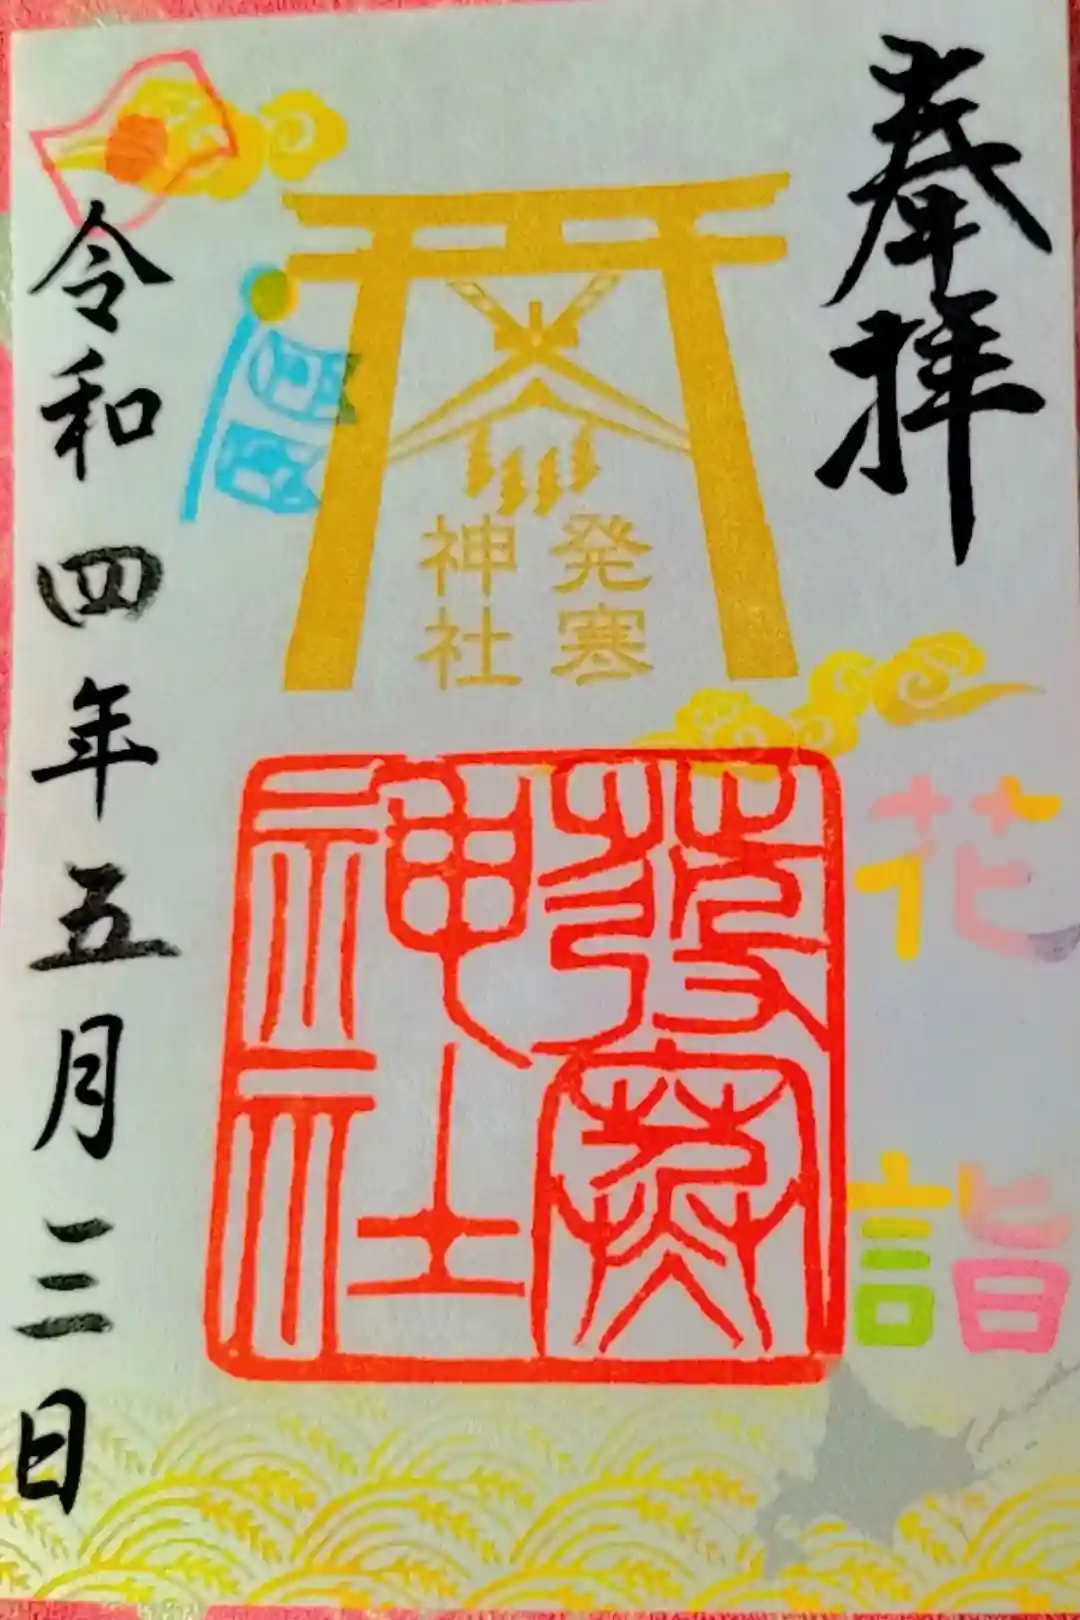 奉拝
花詣
発寒
神社
發寒
神社
令和四年五月三日
国安